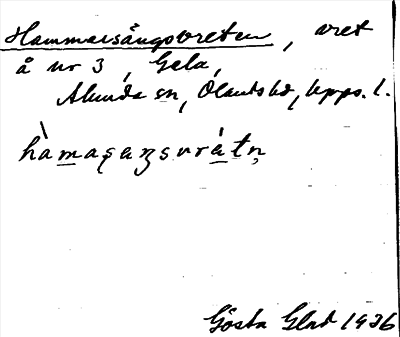 Hammarsängsvreten, vret
å nr 3, Gela,
Alunda sn, Olands hd, Upps. l.
hàmașaŋsvrètņ
Gösta Glad 1936